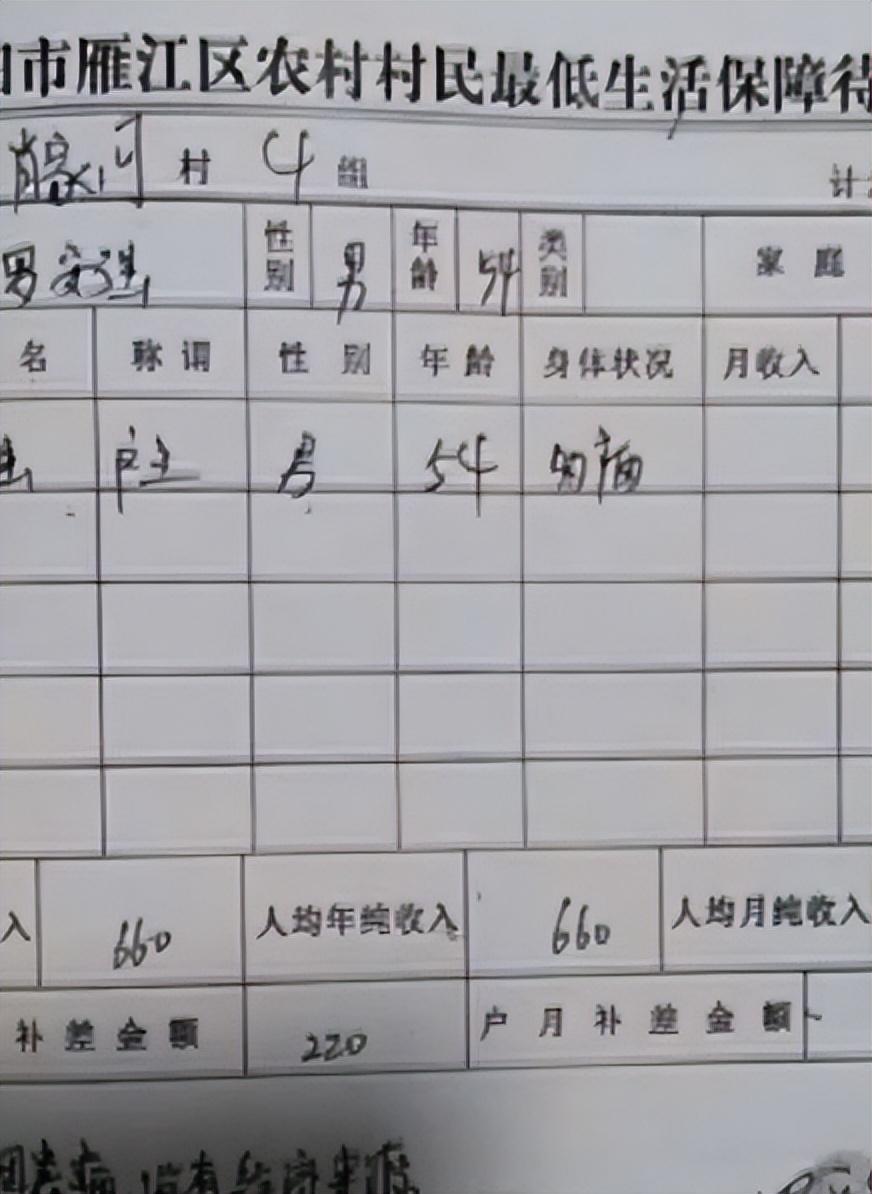 市雁江区农村村民最低生活保障待
河 村 4 组 计
罗 性别 男 年龄 54 类别 家庭
名 称谓 性别 年龄 身体状况 月收入
户主 男 54 病
入 660 人均年纯收入 660 人均月纯收入
补差金额 220 户月补差金额
因患病 没有经济来源